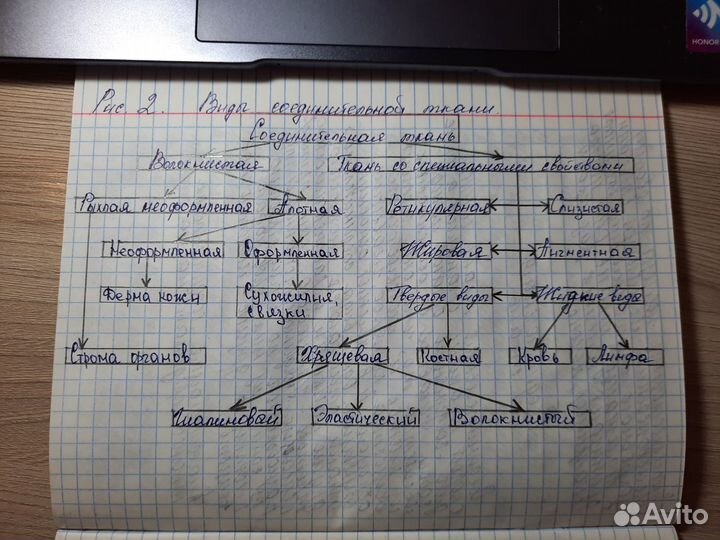 HONOR
Рис 2. Виды соединительной ткани.
Соединительная ткань
Волокнистая
Ткань со специальными свойствами
Рыхлая неоформленная
Плотная
Ретикулярная
Слизистая
Неоформленная
Оформленная
Жировая
Пигментная
Дерма кожи
Сухожилия, связки
Твердые виды
Жидкие виды
Строма органов
Хрящевая
Костная
Кровь
Лимфа
Гиалиновый
Эластический
Волокнистый
Avito